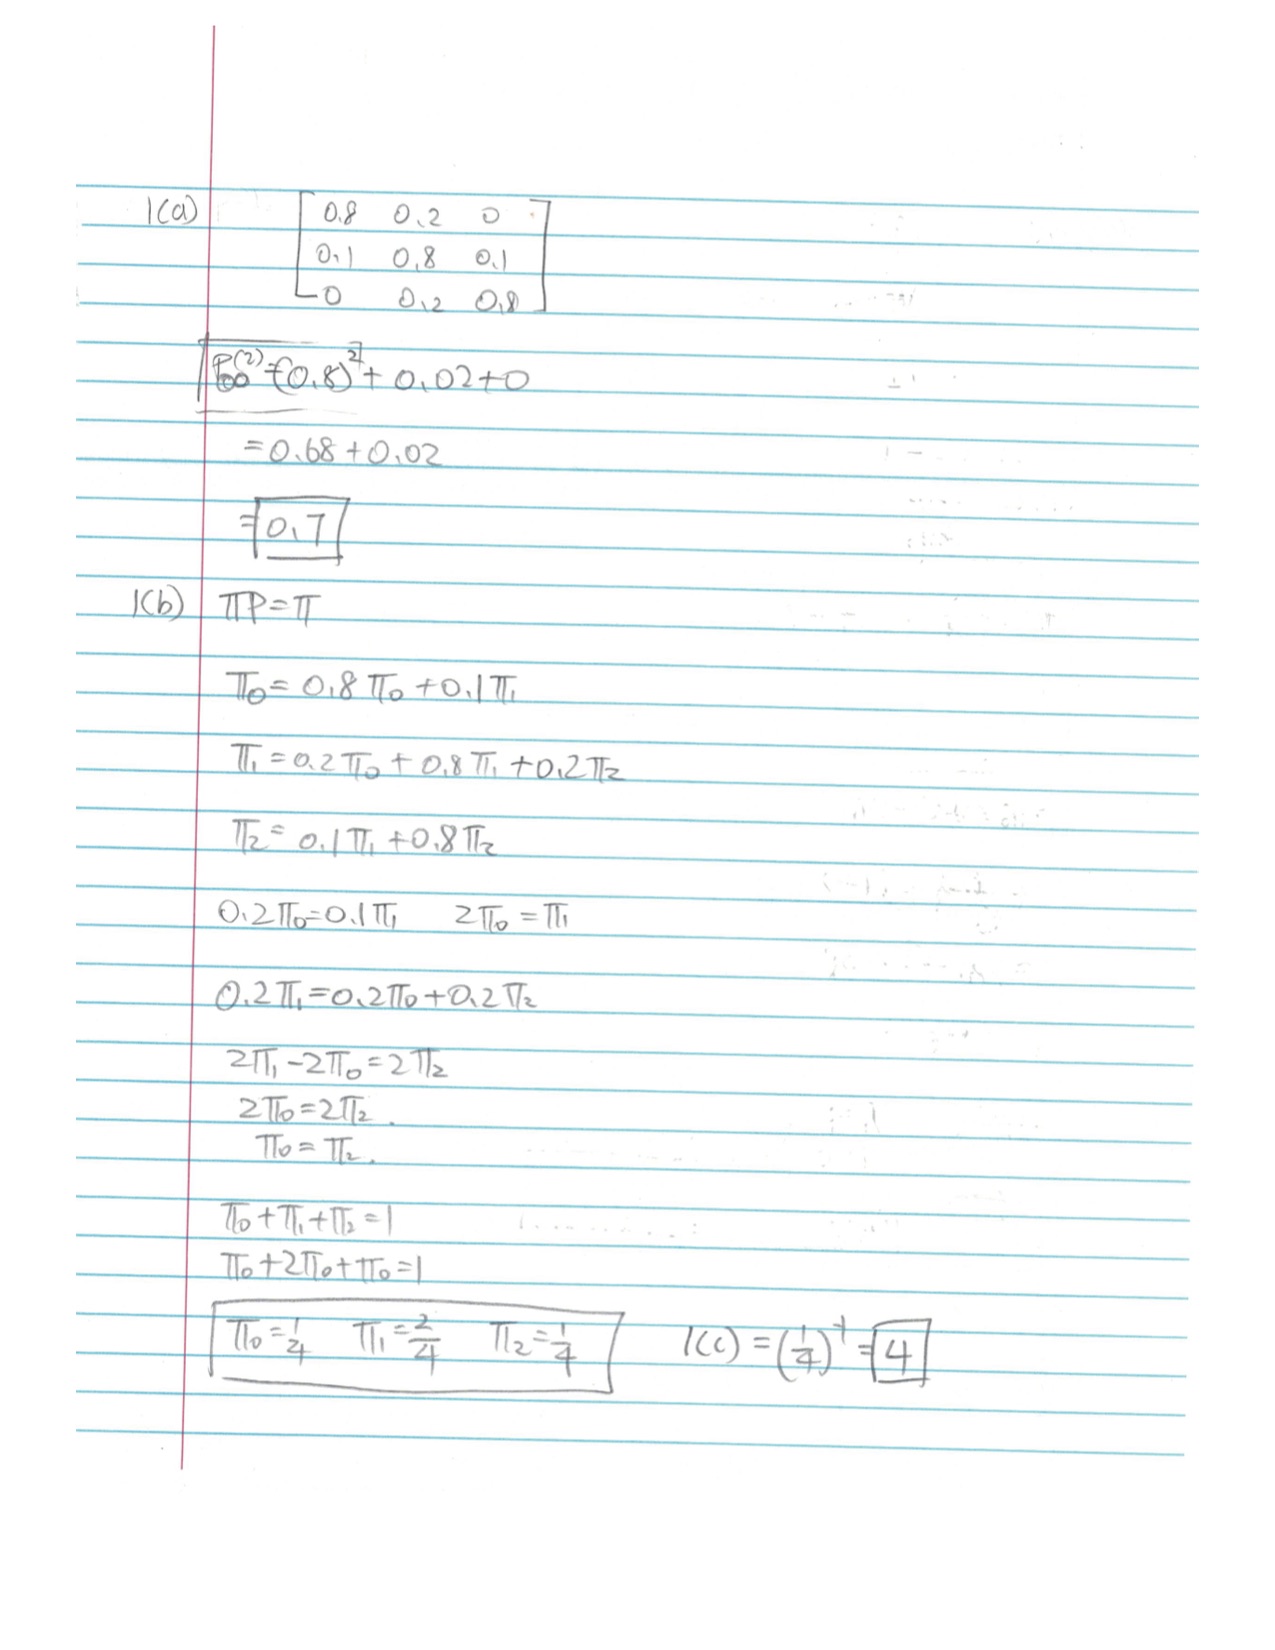 1(a)
0.8 0.2 0
0.1 0.8 0.1
0 0.2 0.8
P₀₀⁽²⁾ = (0.8)² + 0.02 + 0
= 0.68 + 0.02
= 0.7
1(b) πP = π
π₀ = 0.8π₀ + 0.1π₁
π₁ = 0.2π₀ + 0.8π₁ + 0.2π₂
π₂ = 0.1π₁ + 0.8π₂
0.2π₀ = 0.1π₁ 2π₀ = π₁
0.2π₁ = 0.2π₀ + 0.2π₂
2π₁ - 2π₀ = 2π₂
2π₀ = 2π₂.
π₀ = π₂.
π₀ + π₁ + π₂ = 1
π₀ + 2π₀ + π₀ = 1
π₀ = 1/4 π₁ = 2/4 π₂ = 1/4 1(c) = (1/4)⁻¹ = 4